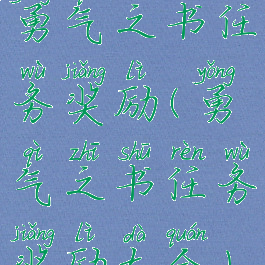 勇气之书任
wù jiǎng lì yǒng
务奖励(勇
qì zhī shū rèn wù
气之书任务
jiǎng lì dà quán
奖励大全)